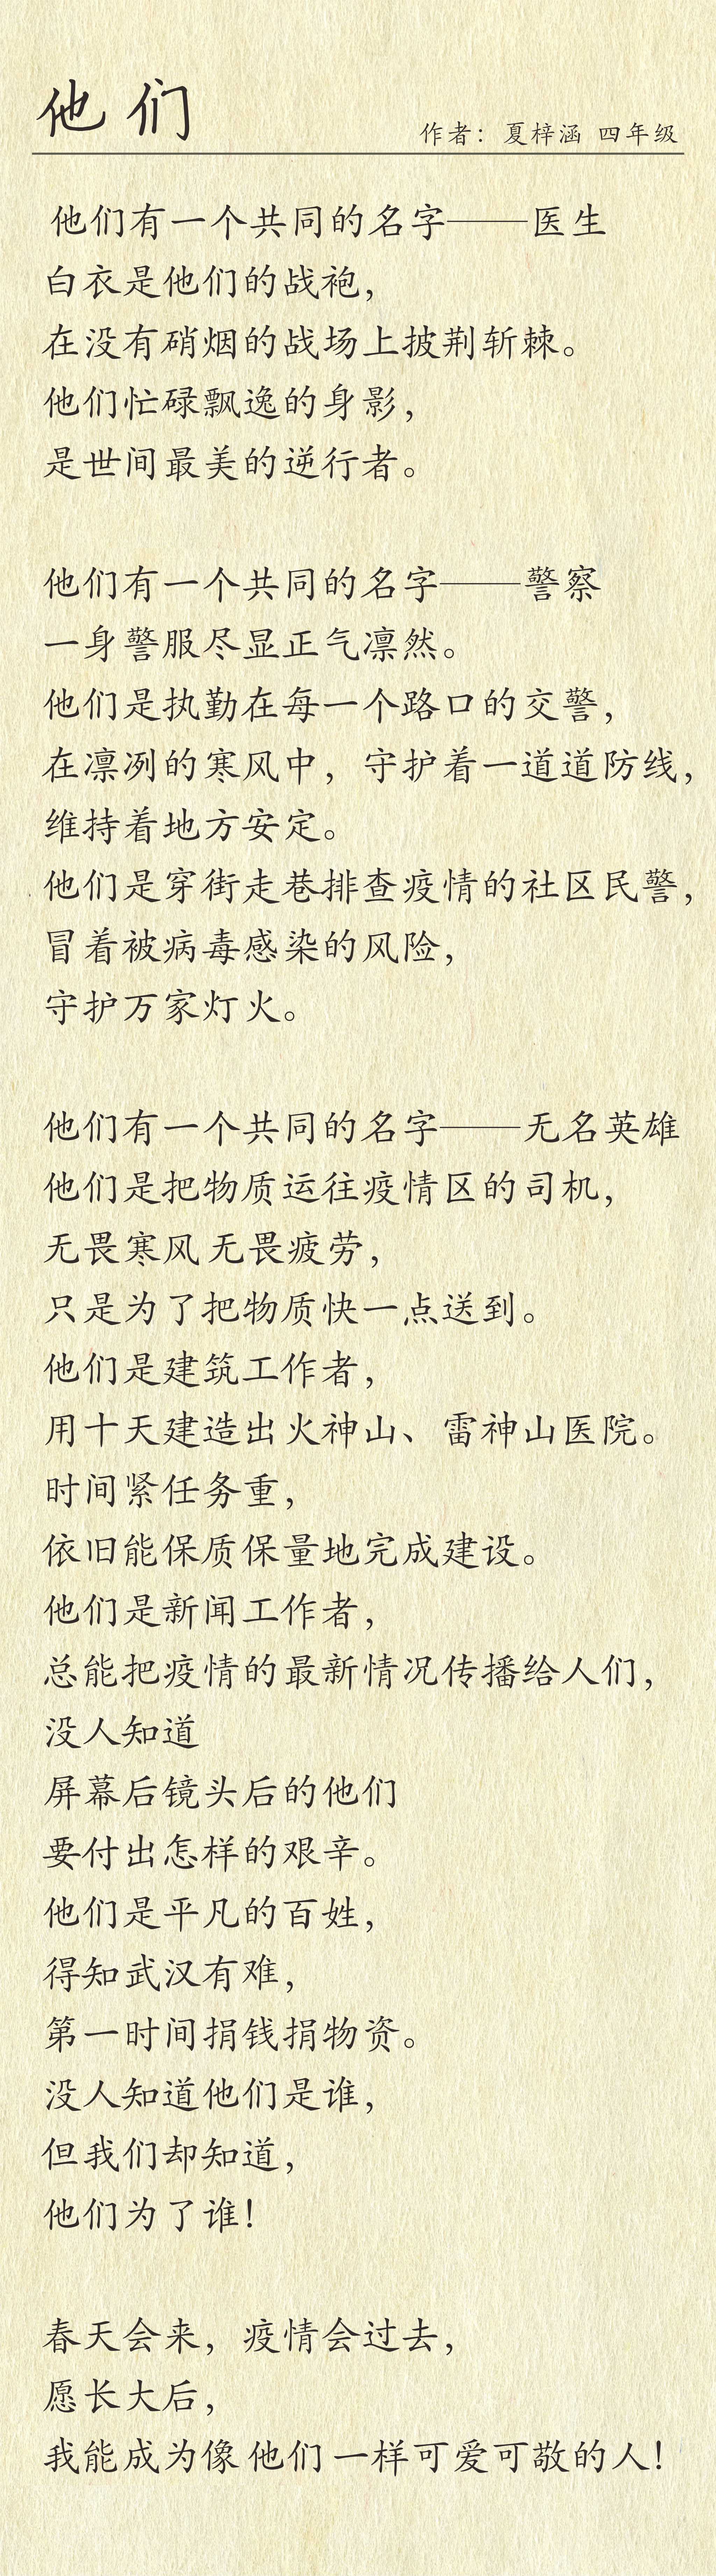 他们
作者：夏梓涵 四年级
他们有一个共同的名字——医生
白衣是他们的战袍，
在没有硝烟的战场上披荆斩棘。
他们忙碌飘逸的身影，
是世间最美的逆行者。
他们有一个共同的名字——警察
一身警服尽显正气凛然。
他们是执勤在每一个路口的交警，
在凛冽的寒风中，守护着一道道防线，
维持着地方安定。
他们是穿街走巷排查疫情的社区民警，
冒着被病毒感染的风险，
守护万家灯火。
他们有一个共同的名字——无名英雄
他们是把物质运往疫情区的司机，
无畏寒风 无畏疲劳，
只是为了把物质快一点送到。
他们是建筑工作者，
用十天建造出火神山、雷神山医院。
时间紧任务重，
依旧能保质保量地完成建设。
他们是新闻工作者，
总能把疫情的最新情况传播给人们，
没人知道
屏幕后镜头后的他们
要付出怎样的艰辛。
他们是平凡的百姓，
得知武汉有难，
第一时间捐钱捐物资。
没人知道他们是谁，
但我们却知道，
他们为了谁！
春天会来，疫情会过去，
愿长大后，
我能成为像他们一样可爱可敬的人！